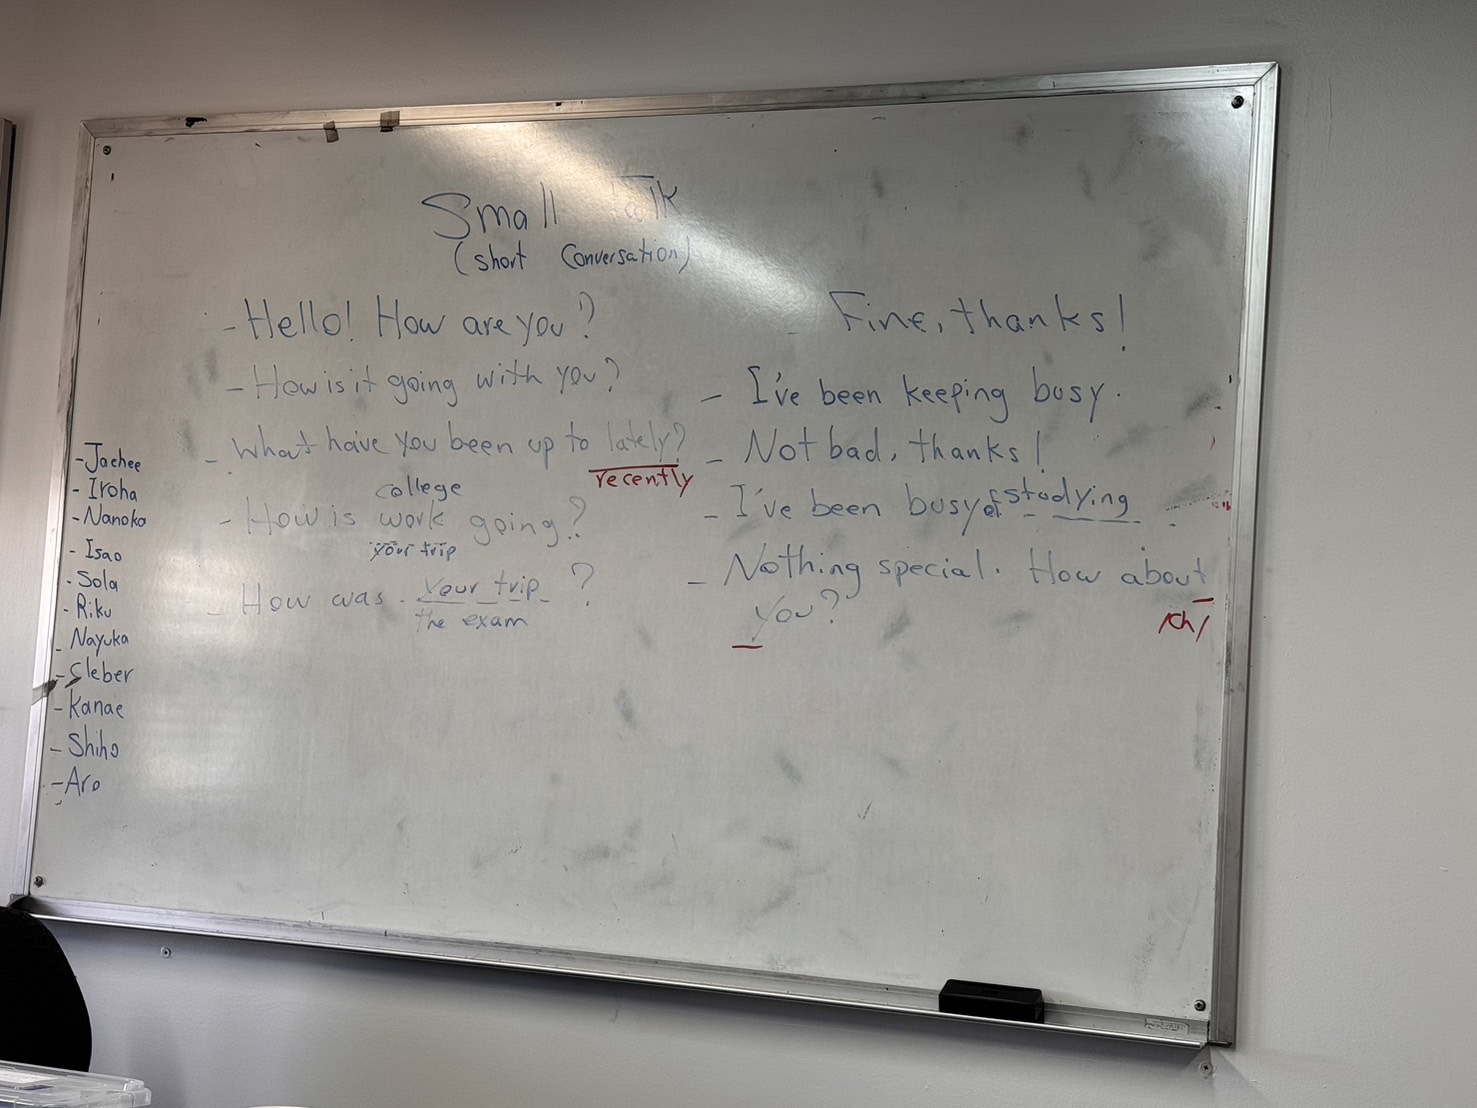 Small Talk
(short Conversation)
- Hello! How are you?
- How is it going with you?
- What have you been up to lately?
recently
college
- How is work going?
your trip
- How was your trip ?
the exam
- Fine, thanks!
- I've been keeping busy.
- Not bad, thanks!
- I've been busy studying.
- Nothing special. How about
you?
/ch/
- Jaehee
- Iroha
- Nanoka
- Isao
- Sola
- Riku
- Nayuka
- Cleber
- Kanae
- Shiho
- Aro